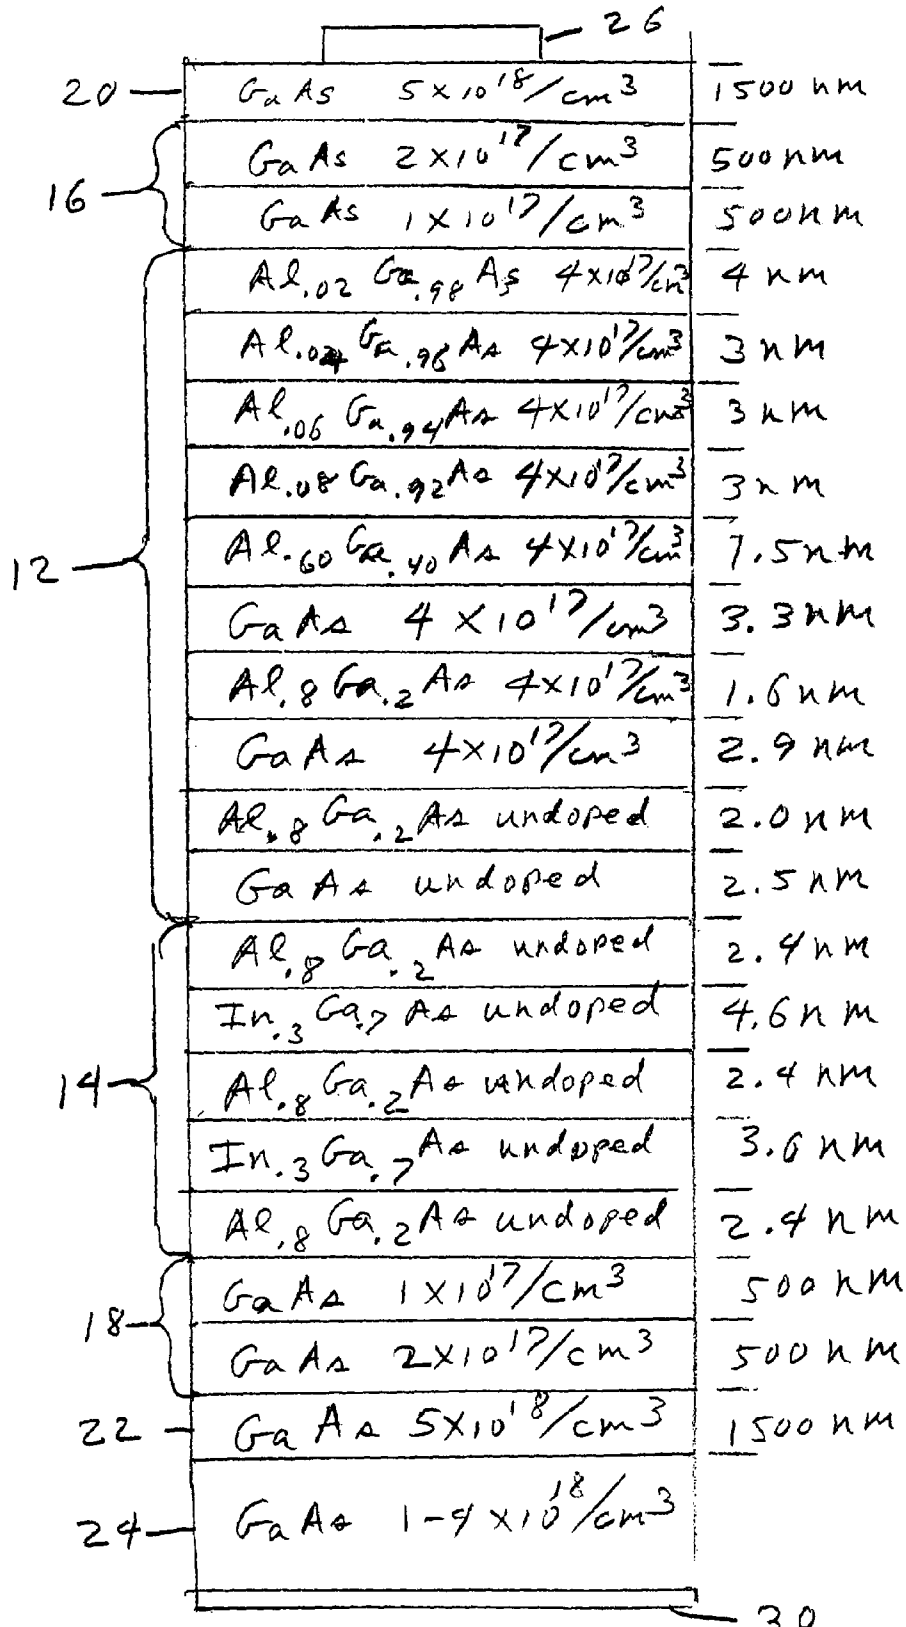 26
20 GaAs 5×10^18/cm^3 1500 nm
GaAs 2×10^17/cm^3 500 nm
16
GaAs 1×10^17/cm^3 500nm
Al.02 Ga.98 As 4×10^17/cm^3 4 nm
Al.04 Ga.96 As 4×10^17/cm^3 3 nm
Al.06 Ga.94 As 4×10^17/cm^3 3 nm
Al.08 Ga.92 As 4×10^17/cm^3 3 nm
12
Al.60 Ga.40 As 4×10^17/cm^3 7.5nm
GaAs 4×10^17/cm^3 3.3nm
Al.8 Ga.2 As 4×10^17/cm^3 1.6 nm
GaAs 4×10^17/cm^3 2.9 nm
Al.8 Ga.2 As undoped 2.0 nm
GaAs undoped 2.5 nm
Al.8 Ga.2 As undoped 2.4 nm
In.3 Ga.7 As undoped 4.6 nm
14
Al.8 Ga.2 As undoped 2.4 nm
In.3 Ga.7 As undoped 3.6 nm
Al.8 Ga.2 As undoped 2.4 nm
GaAs 1×10^17/cm^3 500 nm
18
GaAs 2×10^17/cm^3 500 nm
22 GaAs 5×10^18/cm^3 1500 nm
24 GaAs 1-4×10^18/cm^3